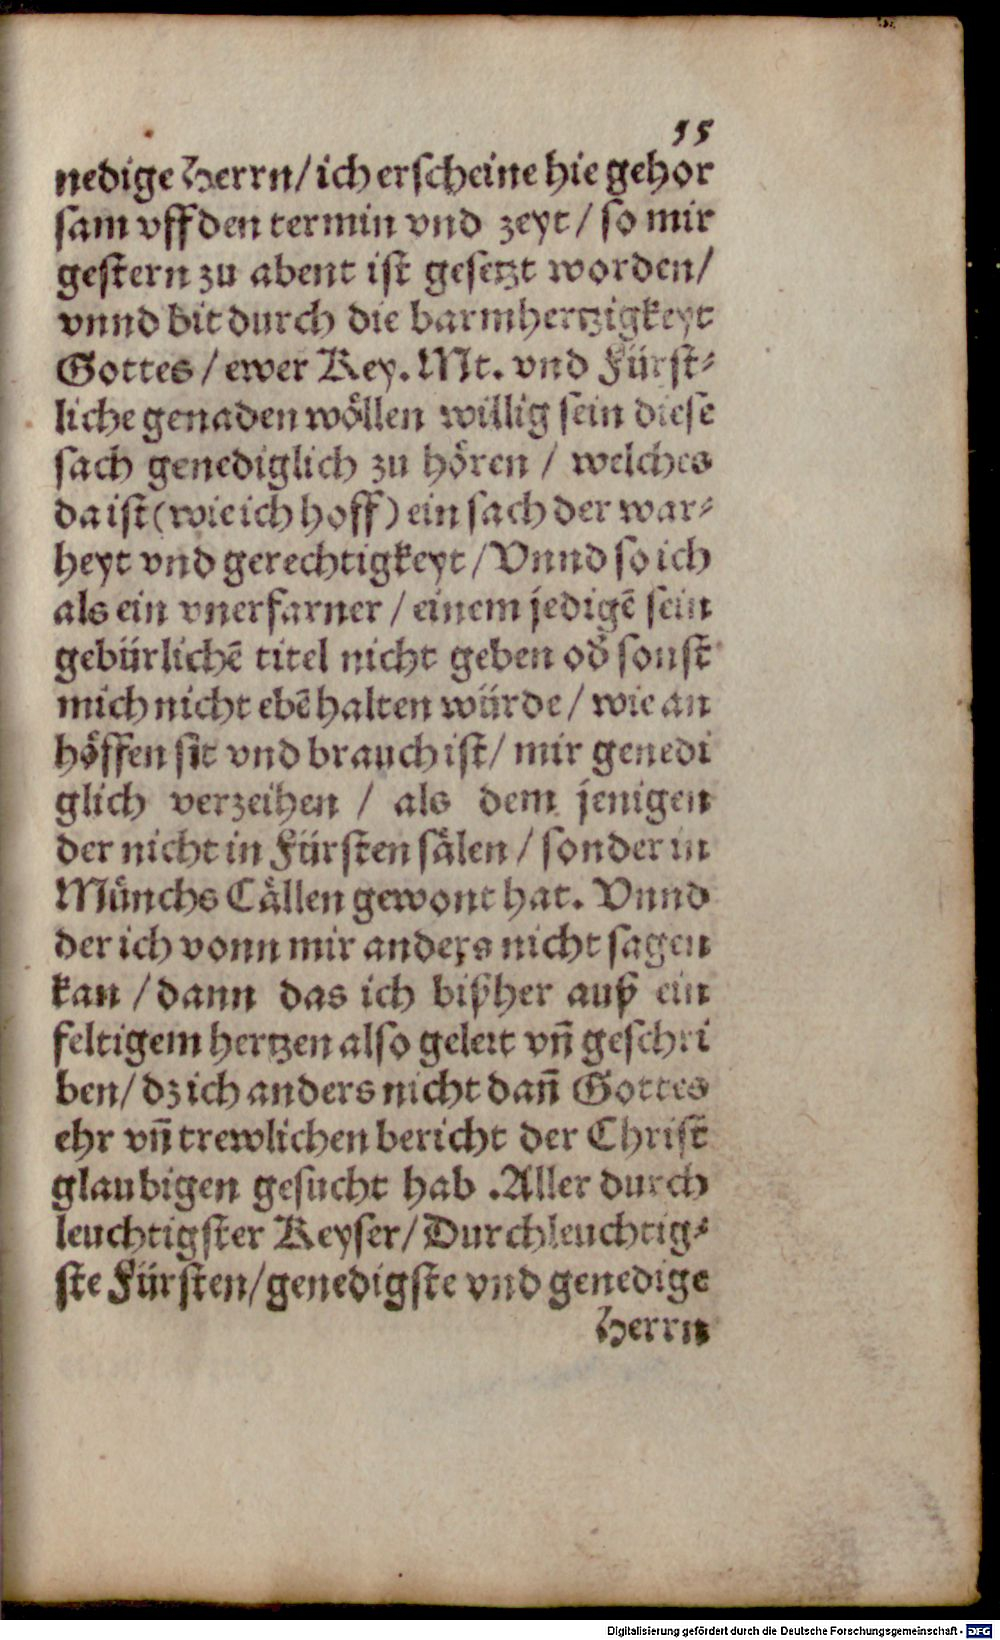 15
nedige Herrn/ ich erscheine hie gehor
sam vff den termin vnd zeyt/ so mir
gestern zu abent ist gesetzt worden/
vnnd bit durch die barmhertzigkeyt
Gottes/ ewer Key. Mt. vnd Fürst⸗
liche genaden wöllen willig sein diese
sach genediglich zu hören/ welches
da ist (wie ich hoff) ein sach der war⸗
heyt vnd gerechtigkeyt/ Vnnd so ich
als ein vnerfarner/ einem jedigē sein
gebürlichē titel nicht geben oď sonst
mich nicht ebē halten würde/ wie an
höffen sit vnd brauch ist/ mir genedi
glich verzeihen/ als dem jenigen
der nicht in Fürsten sälen/ sonder in
Münchs Cällen gewont hat. Vnnd
der ich vonn mir anders nicht sagen
kan/ dann das ich bißher auß ein
feltigem hertzen also gelert vñ geschri
ben/ dz ich anders nicht dañ Gottes
ehr vñ trewlichen bericht der Christ
glaubigen gesucht hab. Aller durch
leuchtigster Keyser/ Durchleuchtig⸗
ste Fürsten/ genedigste vnd genedige
Herrn
Digitalisierung gefördert durch die Deutsche Forschungsgemeinschaft - DFG